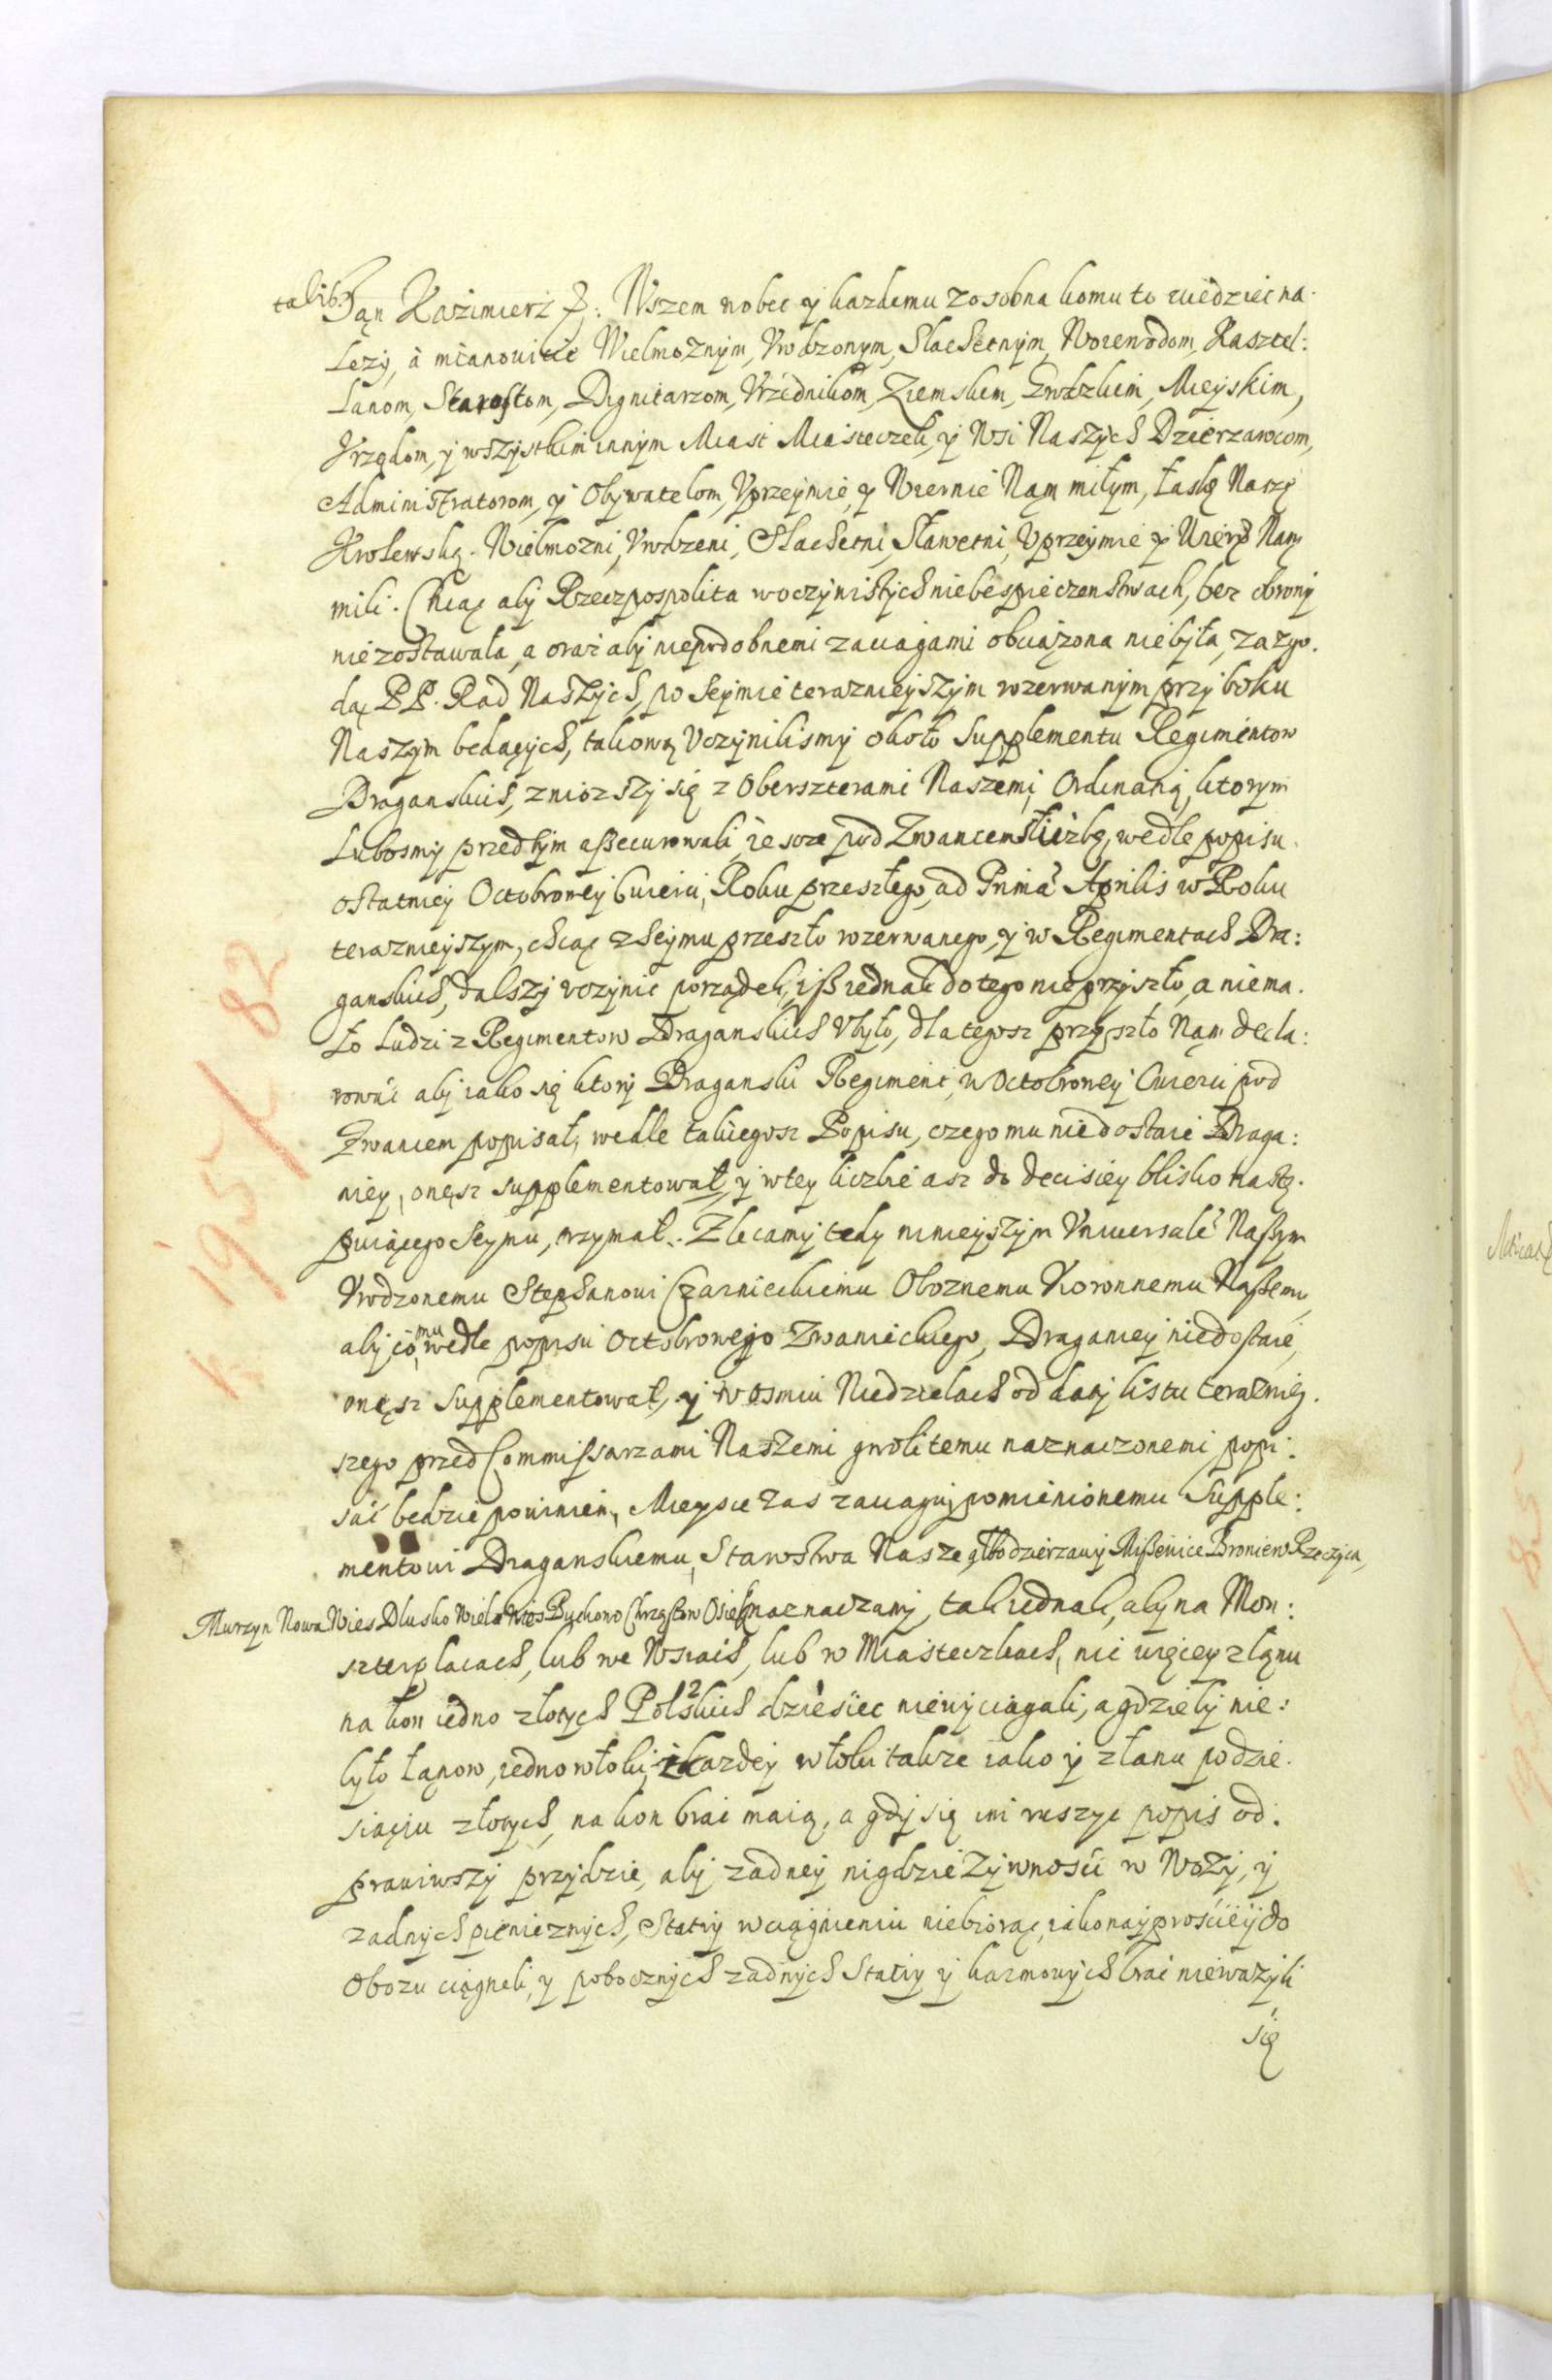 talib3
Jan Kazimierz &: Wszem wobec y kazdemu zosobna komu to wiedziec na.
Lezy, à mianowicie Wielmoznym, Vrodzonym, Slachetnym, Woiewodom, Kasztel:
Lanom, Starostom, Dignitarzom, Vrzednikom, Ziemskim, Grodzkim, Mieyskim,
Vrzędom, y wszystkim innym Miast Miasteczek, y Wsi Naszych Dzierzawcom,
Administratorom, y Obywatelom, Vprzeymie, y Wiernie Nąm miłym, łaskę Naszę
Krolewską. Wielmozni, Vrodzeni, Slachetni, Sławetni, Vprzeymie y Wiernie Nąm
mili. Chcąc aby Rzeczpospolita woczywistych niebespieczenstwach, bez obrony
niezostawala, a oraz aby niepodobnemi zaciągami obciążona niebyła, zazgo.
dą PP. Rad Naszych, po Seymie terazniejszym rozerwanym przy boku
Naszym bedących, takową Vczynilismy około Supplementu Regimentow
Draganskich, zniozszy się z Oberszterami Naszemi, Ordinaną, ktorym
Lubosmy przedtym assecurowali, ze soze pod Zwancem liczbę, wedle popisu
ostatniey Octobrowey cwierci, Roku przeszłego, ad Prima Aprilis w Roku
terazniejszym, chcąc z Seymu przeszło rozerwanego, y w Regimentach Dra:
ganskich, dalszy vczynic porządek, iß iednak dotego nieprzyszło, a niema.
ło Ludzi z Regimentow Draganskich Vbyło, dlategosz przyszło Nąm decla:
rowac aby iako się ktory Draganski Regiment, w Octobrowey Cwierci pod
Zwancem popisał, wedle takiegosz Popisu, czego mu niedostaie Draga:
niey, onęsz supplementował, y wtey liczbie asz do decisiey blisko nastę.
puiącego Seymu, trzymał. Zlecamy tedy ninieyszym Vniwersałe Naßym
Vrodzonemu Stephanowi Czarnieckiemu Oboznemu Koronnemu Naßemu
aby co mu wedle popisu Octobrowego Zwanieckiego, Draganiey niedostaie,
onęsz Supplementował, y w osmiu Niedzielach od daty listu teraźniey.
szego przed Commissarzami Naszemi gwoli temu naznaczonemi popi:
sać bedzie powinien, Mieysce zas zaciągu, pomienionemu Supple:
mentowi Draganskiemu, Starostwa Nasze, albo dzierzawy Mißenice Broniew Rzeczyca,
Murzyn Nowa Wies Dlusko Wiela Wies Puchowo Chrzęstow Osiek naznaczamy, tak iednak, aby na Mon:
szterplacach, lub we Wsiach, lub w Miasteczkach, nic więcey z łąnu
na kon iedno złotych Polskich 2 dziesiec niewyciągali, a gdzieby nie:
było łąnow, iedno włoki, z kazdey włoki takze iako y złanu podzie.
siąciu złotych, na kon brac maią, a gdy się im ruszyc popis od.
prawiwszy przydzie, aby zadney nigdzie Zywnosci w Wozy, y
zadnych pienieznych, Statiy wciągnieniu niebiorąc, iakonayprosciey do
Obozu ciągneli, y pobocznych zadnych Statiy y karmowych brac niewazyli
się
k 195/82